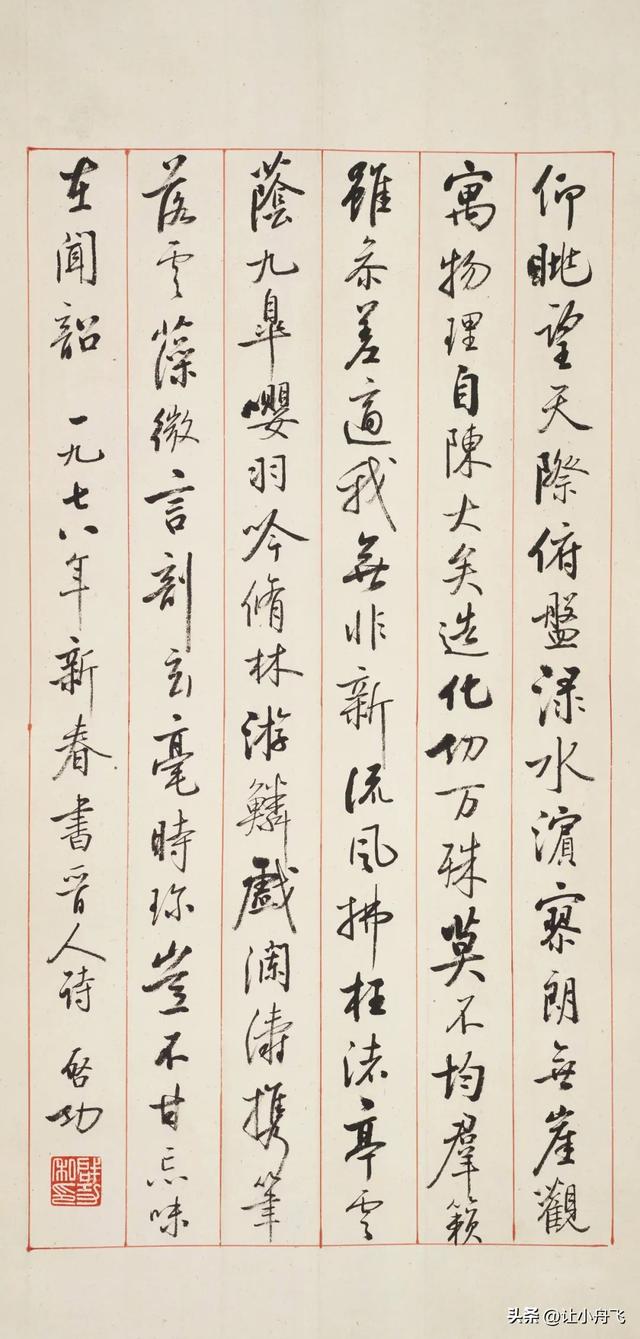 仰眺望天際俯盤淥水濱寥朗無崖觀
寓物理自陳大矣造化功万殊莫不均羣籟
雖参差適我無非新流風拂枉渚亭雲
蔭九皐嚶羽吟脩林游鱗戲瀾濤携筆
落雲藻微言剖玄毫時珍豈不甘忘味
在聞韶 一九七八年新春書晉人詩 啓功
头条 @让小舟飞